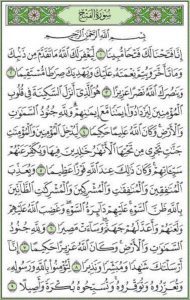 سُورَةُ الفَتْحِ
بِسْمِ ٱللَّهِ ٱلرَّحْمَٰنِ ٱلرَّحِيمِ
إِنَّا فَتَحْنَا لَكَ فَتْحًا مُّبِينًا ١ لِّيَغْفِرَ لَكَ ٱللَّهُ مَا تَقَدَّمَ مِن ذَنۢبِكَ
وَمَا تَأَخَّرَ وَيُتِمَّ نِعْمَتَهُۥ عَلَيْكَ وَيَهْدِيَكَ صِرَٰطًا مُّسْتَقِيمًا ٢
وَيَنصُرَكَ ٱللَّهُ نَصْرًا عَزِيزًا ٣ هُوَ ٱلَّذِىٓ أَنزَلَ ٱلسَّكِينَةَ فِى قُلُوبِ
ٱلْمُؤْمِنِينَ لِيَزْدَادُوٓا۟ إِيمَٰنًا مَّعَ إِيمَٰنِهِمْ وَلِلَّهِ جُنُودُ ٱلسَّمَٰوَٰتِ
وَٱلْأَرْضِ وَكَانَ ٱللَّهُ عَلِيمًا حَكِيمًا ٤ لِّيُدْخِلَ ٱلْمُؤْمِنِينَ وَٱلْمُؤْمِنَٰتِ
جَنَّٰتٍ تَجْرِى مِن تَحْتِهَا ٱلْأَنْهَٰرُ خَٰلِدِينَ فِيهَا وَيُكَفِّرَ عَنْهُمْ
سَيِّـَٔاتِهِمْ وَكَانَ ذَٰلِكَ عِندَ ٱللَّهِ فَوْزًا عَظِيمًا ٥ وَيُعَذِّبَ
ٱلْمُنَٰفِقِينَ وَٱلْمُنَٰفِقَٰتِ وَٱلْمُشْرِكِينَ وَٱلْمُشْرِكَٰتِ ٱلظَّآنِّينَ
بِٱللَّهِ ظَنَّ ٱلسَّوْءِ عَلَيْهِمْ دَآئِرَةُ ٱلسَّوْءِ وَغَضِبَ ٱللَّهُ عَلَيْهِمْ
وَلَعَنَهُمْ وَأَعَدَّ لَهُمْ جَهَنَّمَ وَسَآءَتْ مَصِيرًا ٦ وَلِلَّهِ جُنُودُ
ٱلسَّمَٰوَٰتِ وَٱلْأَرْضِ وَكَانَ ٱللَّهُ عَزِيزًا حَكِيمًا ٧ إِنَّآ
أَرْسَلْنَٰكَ شَٰهِدًا وَمُبَشِّرًا وَنَذِيرًا ٨ لِّتُؤْمِنُوا۟ بِٱللَّهِ وَرَسُولِهِۦ
وَتُعَزِّرُوهُ وَتُوَقِّرُوهُ وَتُسَبِّحُوهُ بُكْرَةً وَأَصِيلًا ٩